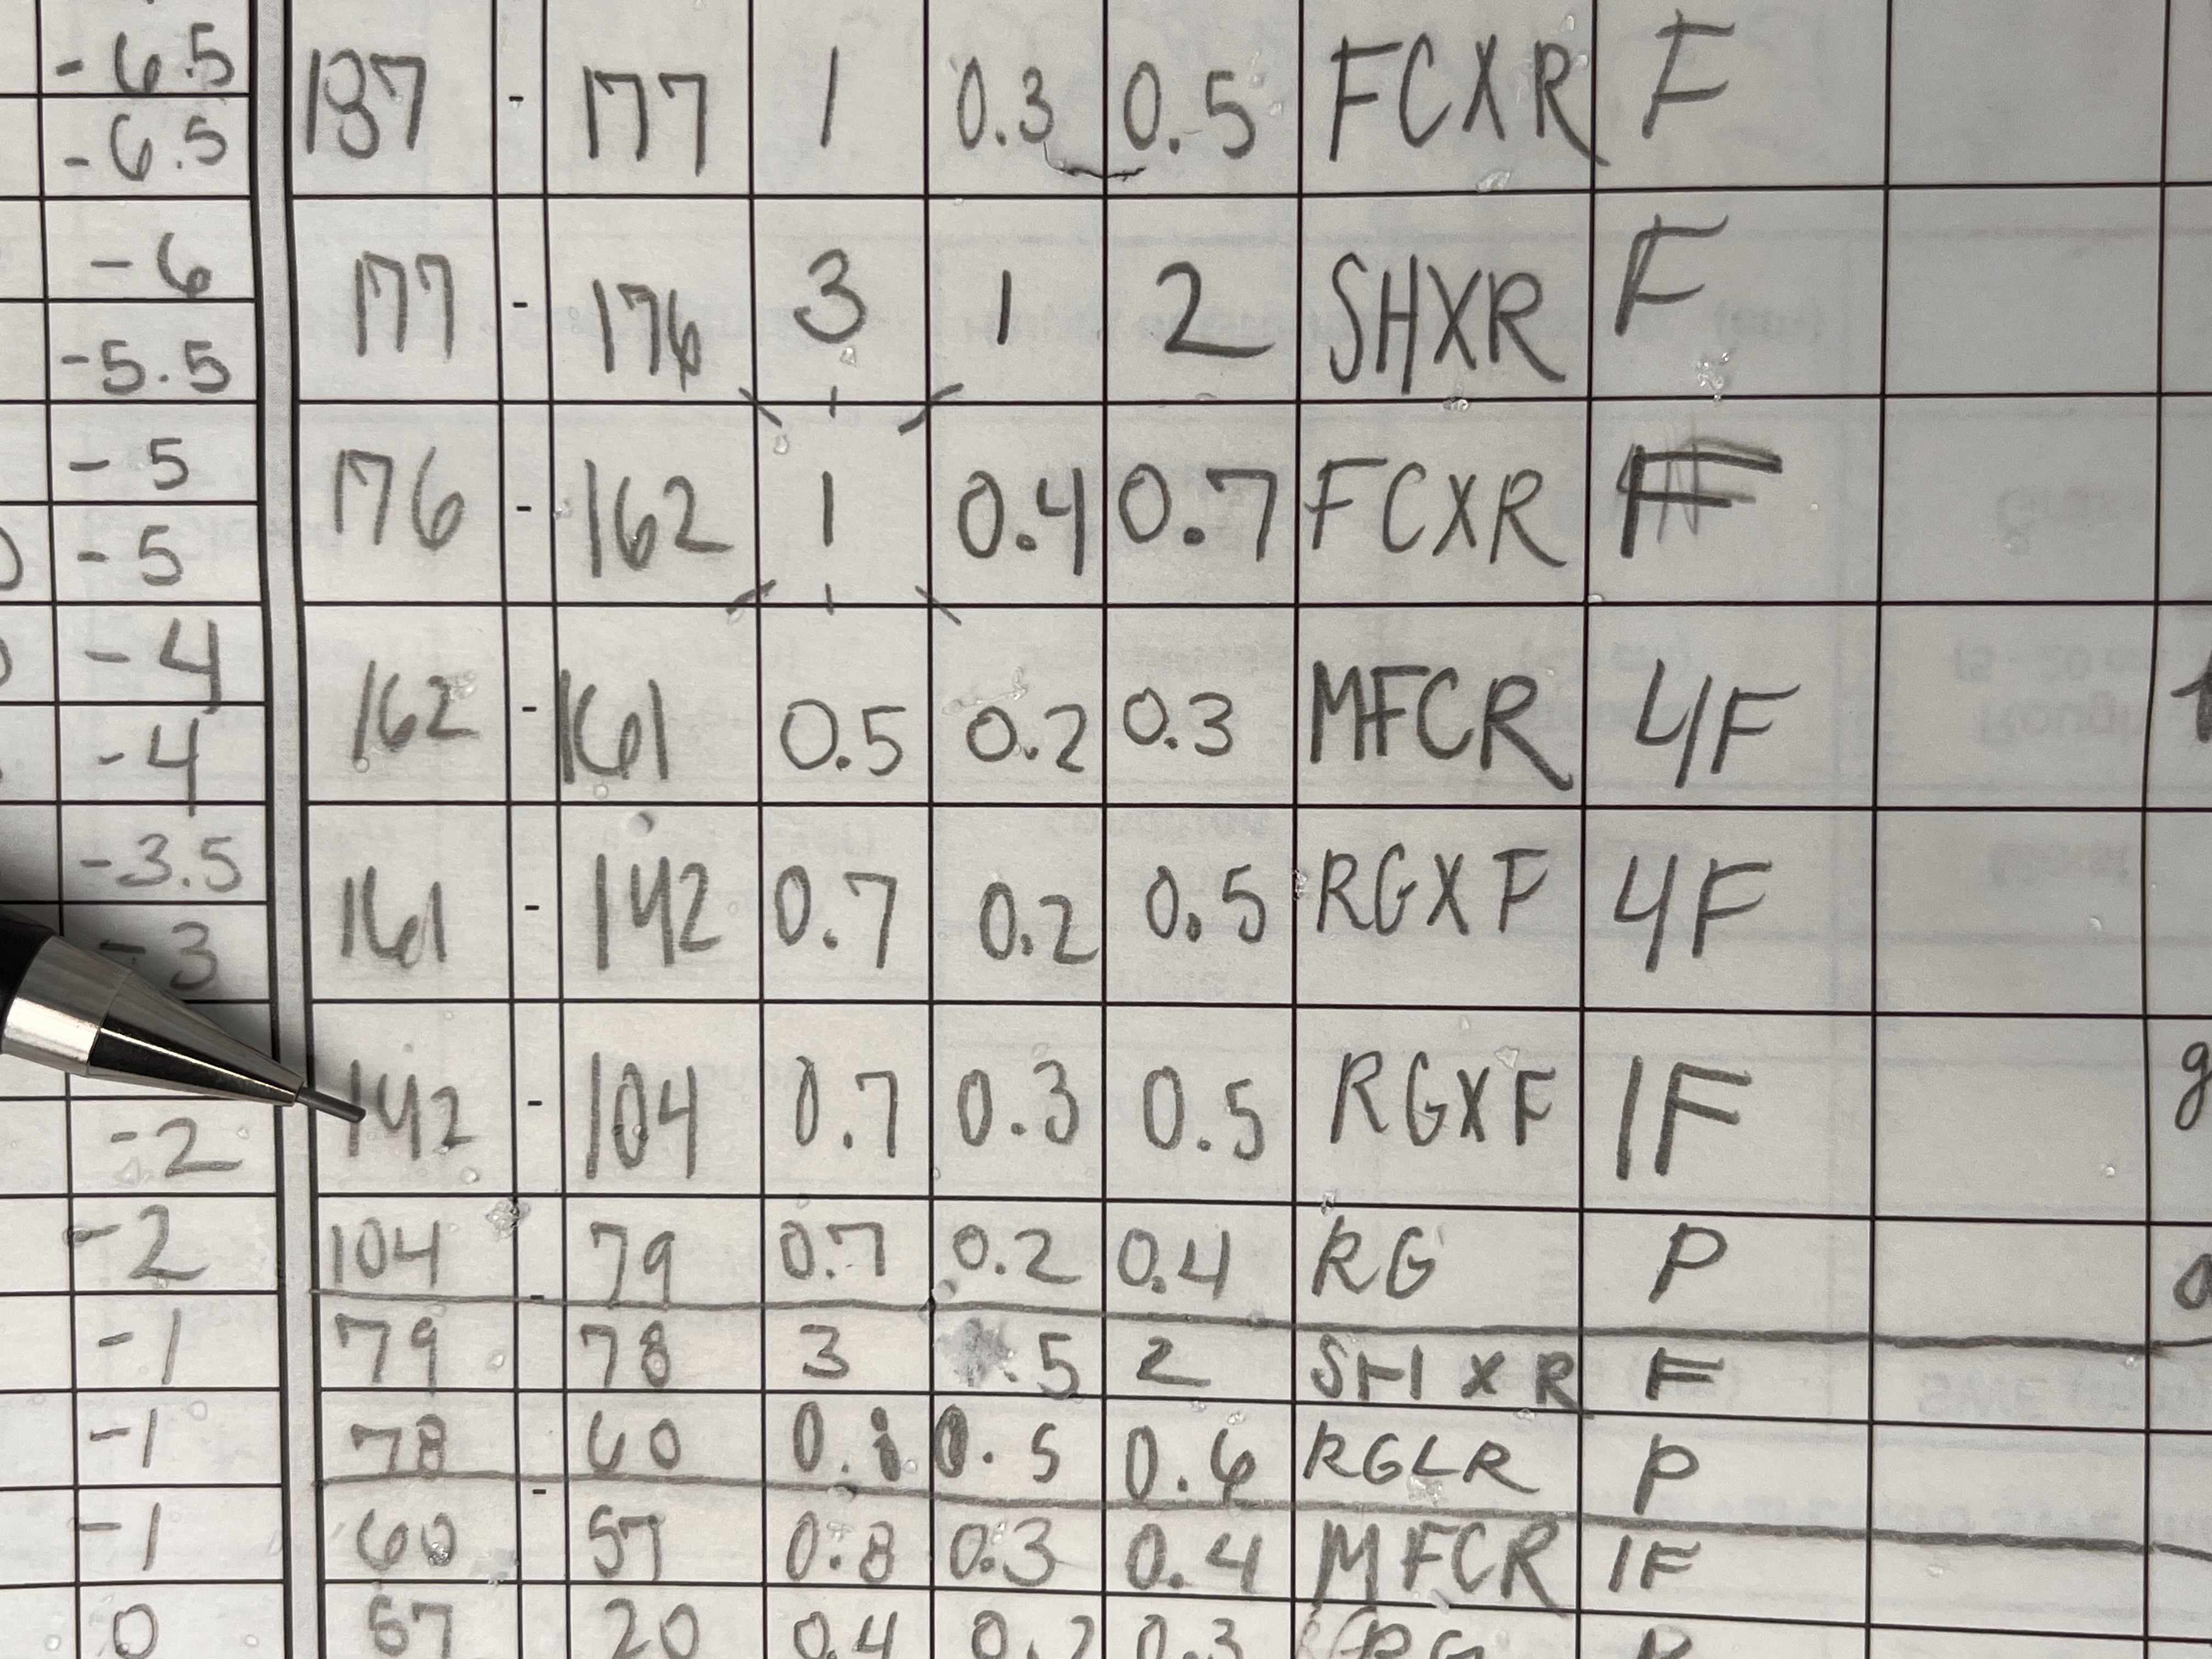 -6.5
187 - 177 1 0.3 0.5 FCXR F
-6.5
-6
177 - 176 3 1 2 SHXR F
-5.5
-5
176 - 162 1 0.4 0.7 FCXR F
-5
-4
162 - 161 0.5 0.2 0.3 MFCR 4F
-4
-3.5
161 - 142 0.7 0.2 0.5 RGXF 4F
-3
142 - 104 0.7 0.3 0.5 RGXF 1F
-2
-2 104 - 79 0.7 0.2 0.4 RG P
-1 79 78 3 .5 2 SHXR F
-1 78 - 60 0.5 0.6 RGLR P
-1 60 57 0.8 0.3 0.4 MFCR 1F
0 57 20 0.4 0.2 0.3 RG